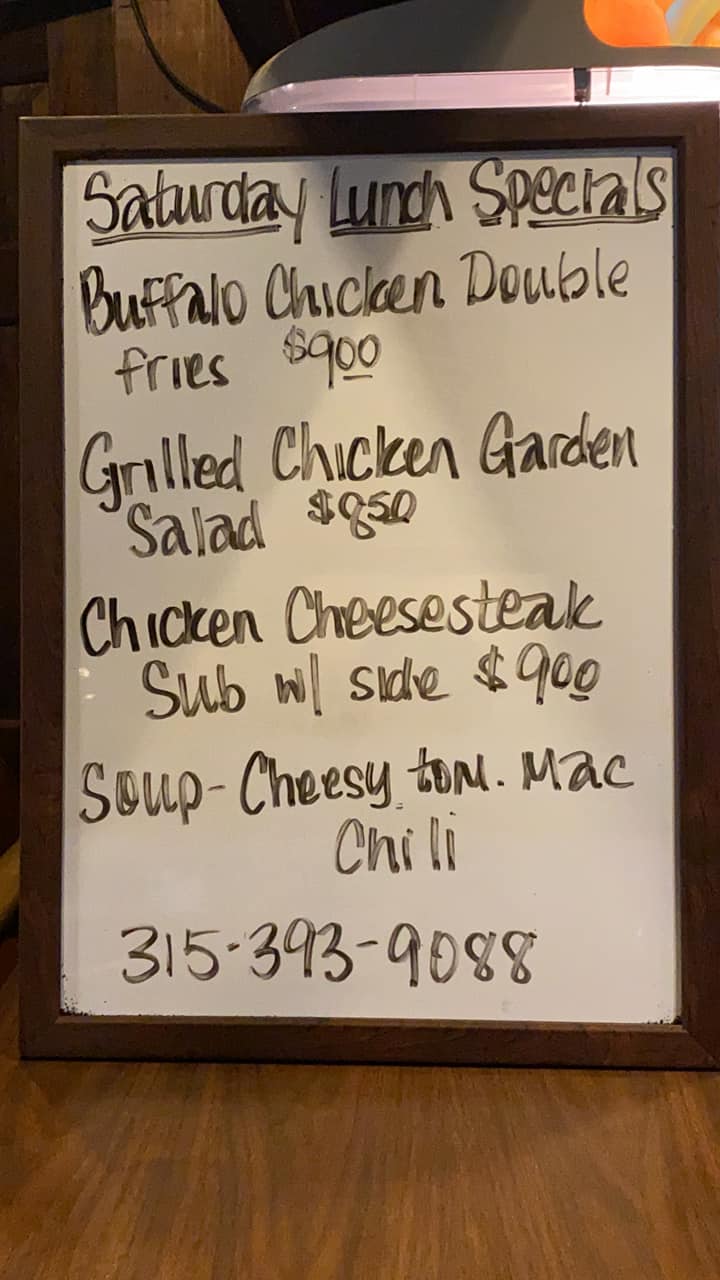 Saturday Lunch Specials
Buffalo Chicken Double
fries $900
Grilled Chicken Garden
Salad $850
Chicken Cheesesteak
Sub w/ side $900
Soup- Cheesy tom. Mac
Chili
315-393-9088